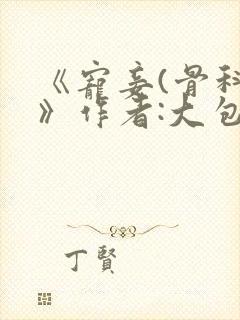 《寵妾(骨科
》作者:大包
丁賢